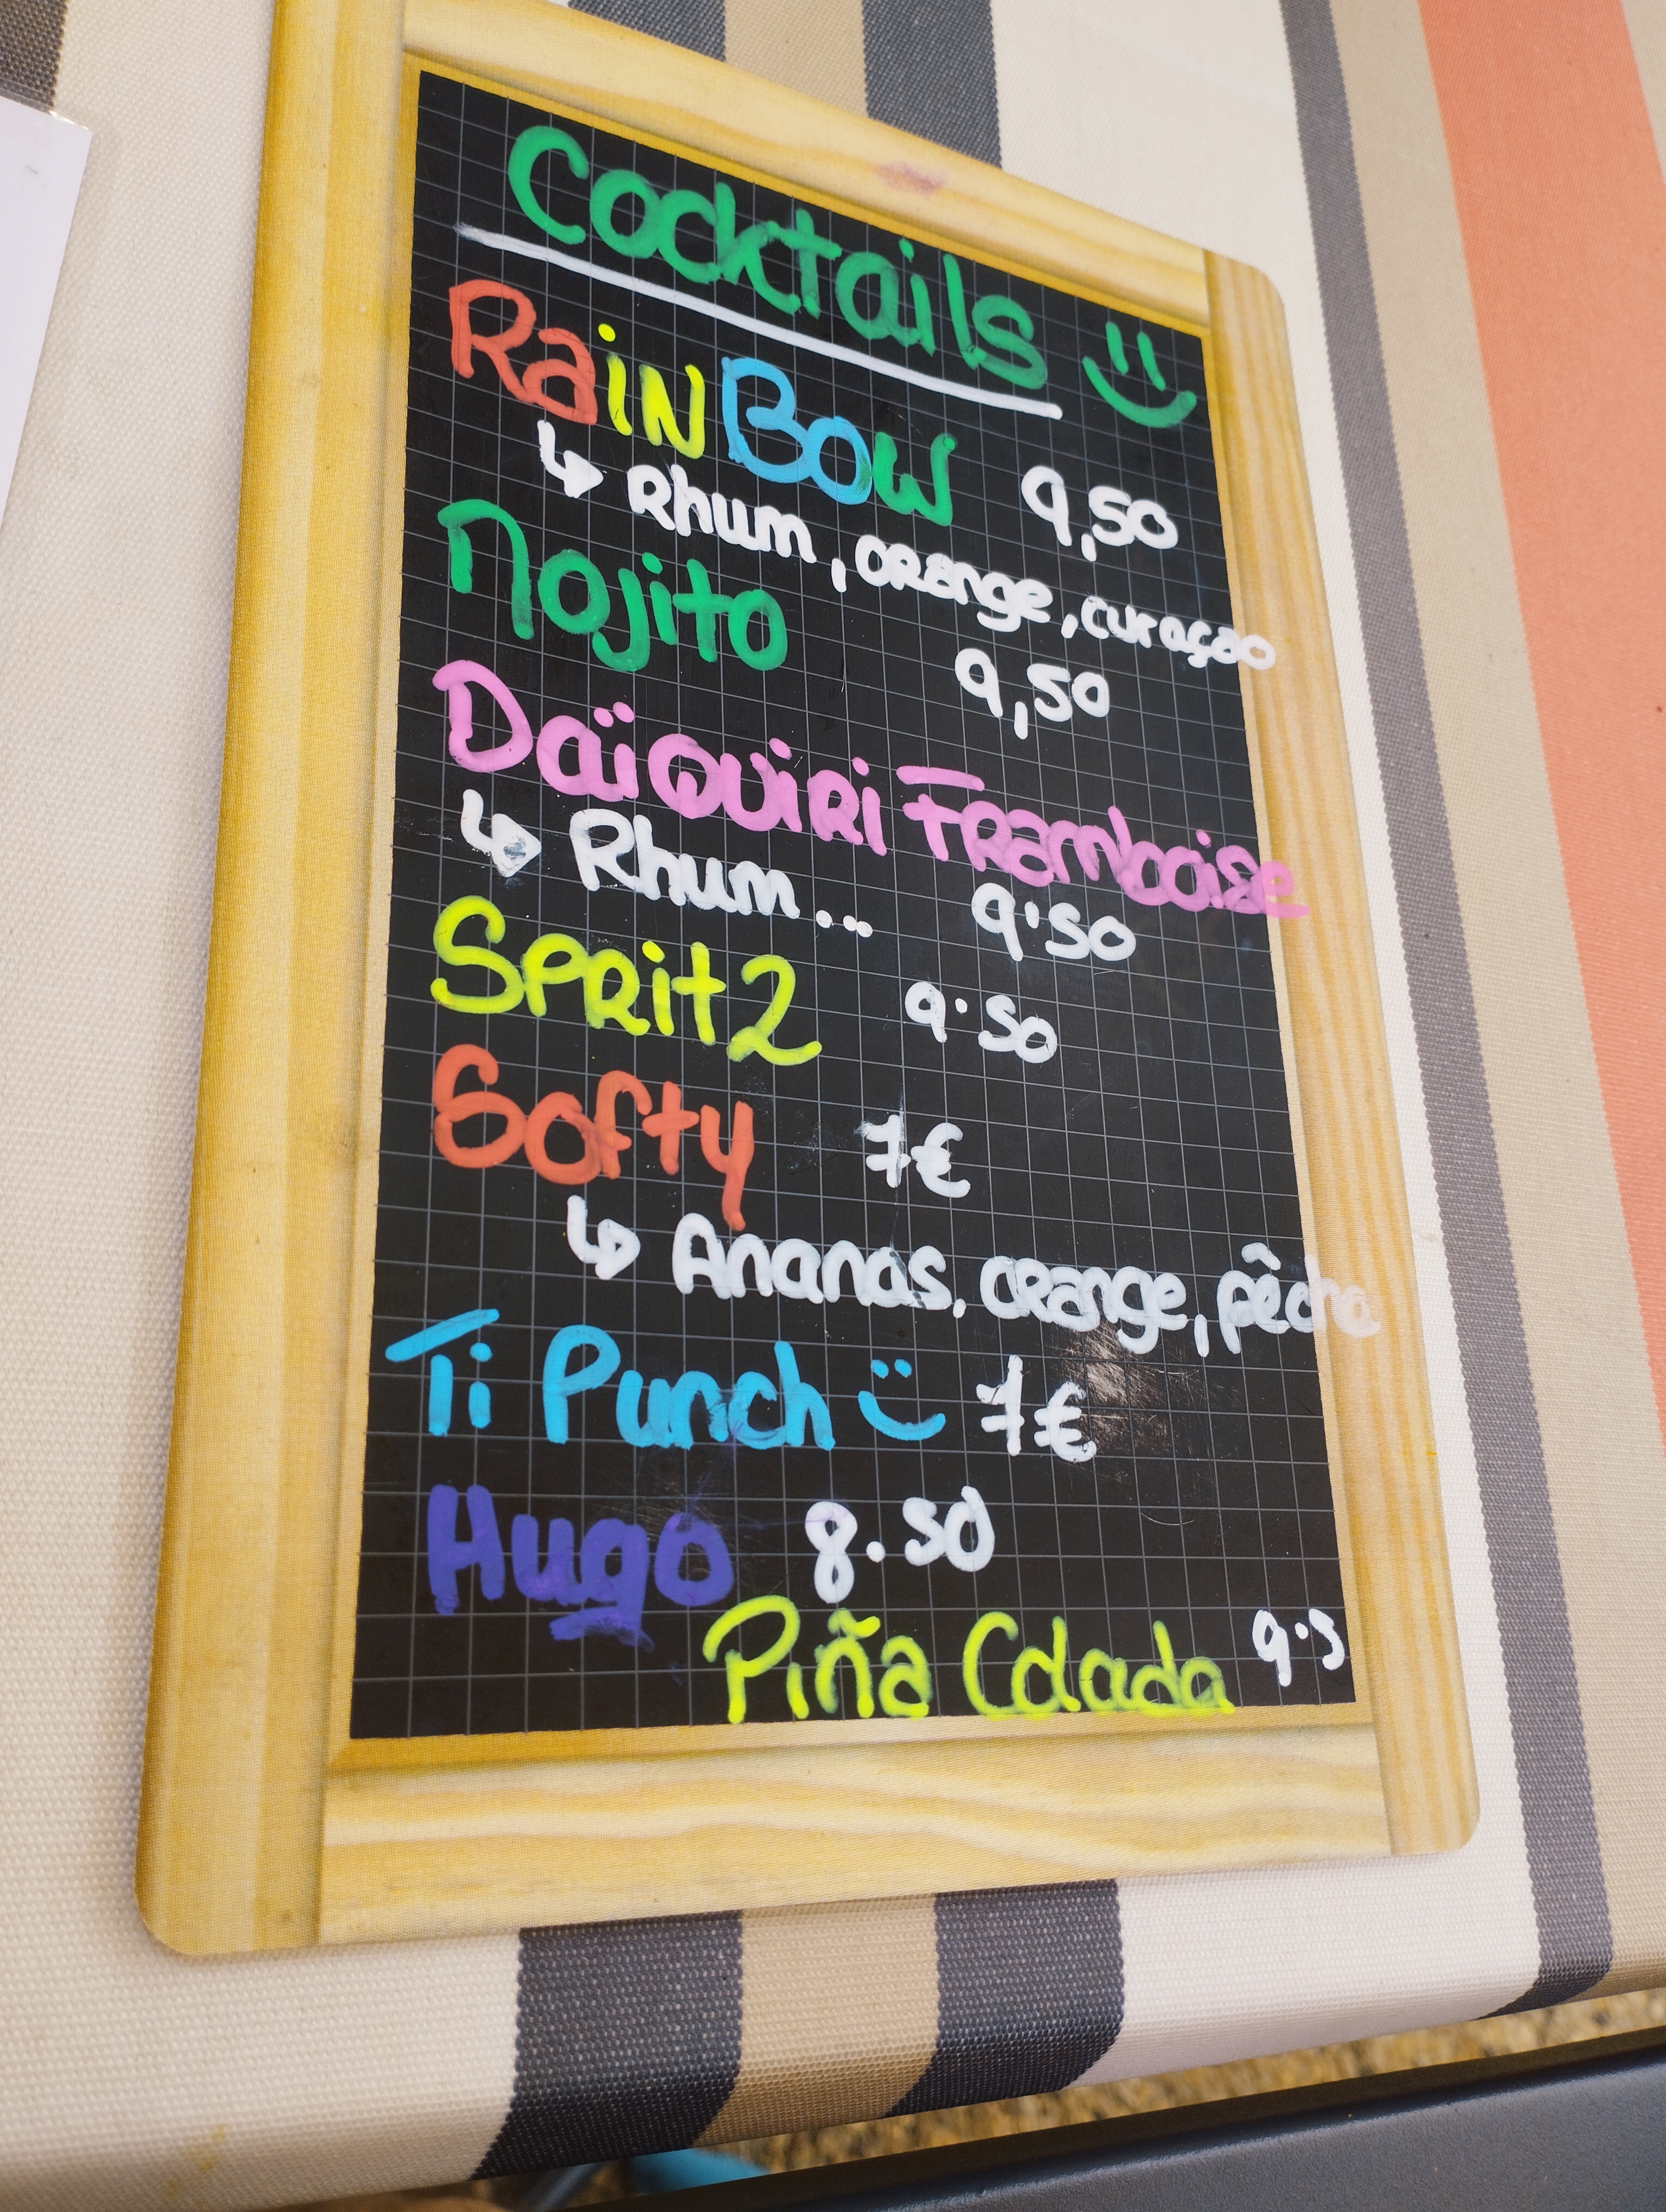 Cocktails
RaiNBOW 9,50
Rhum, orange, curaçao
Mojito 9,50
Daïquiri Framboise
Rhum... 9.50
Spritz 9.50
Softy 7€
Ananas, orange, pêche
Ti Punch 7€
Hugo 8.50
Piña Colada 9.5